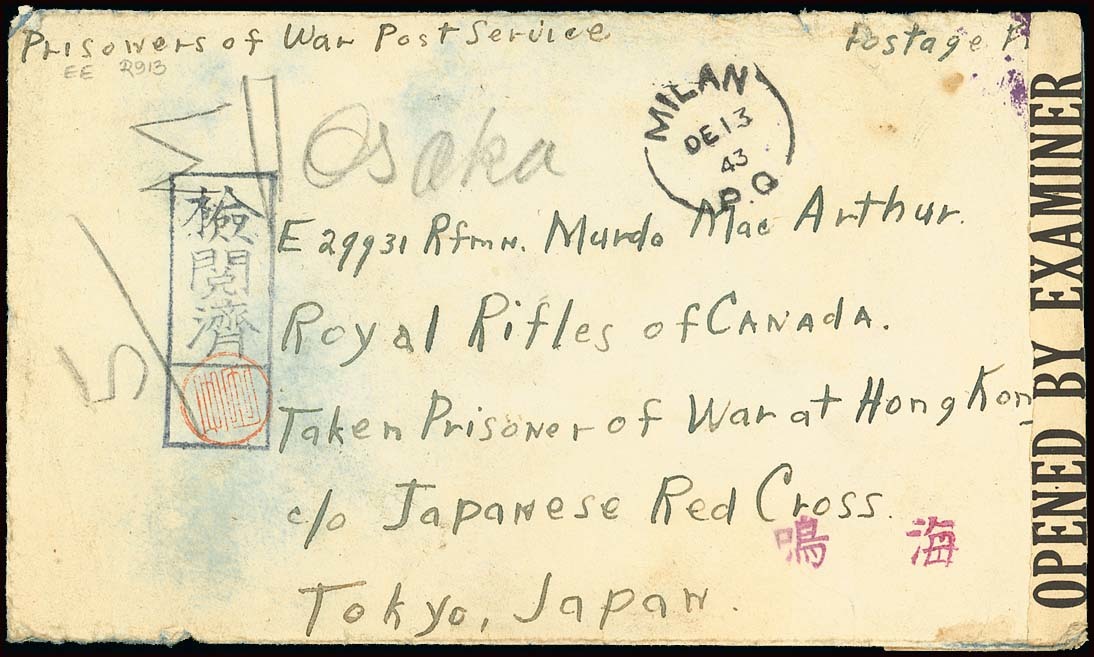 Prisoners of War Post Service
Postage
EE 2913
Osaka
MILAN
DE 13
43
P.Q
E 29931 Rfmn. Murdo Mac Arthur.
Royal Rifles of CANADA.
Taken Prisoner of War at Hong Kon
c/o Japanese Red Cross.
Tokyo, Japan.
檢閲濟
鳴海
OPENED BY EXAMINER